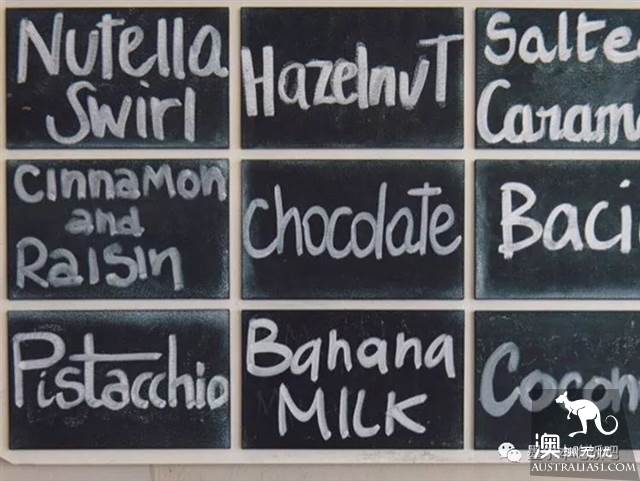 Nutella
Swirl
Hazelnut
Salte
Caram
Cinnamon
and
Raisin
chocolate
Baci
Pistacchio
Banana
MILK
Cocon
澳洲无忧
AUSTRALIA51.COM